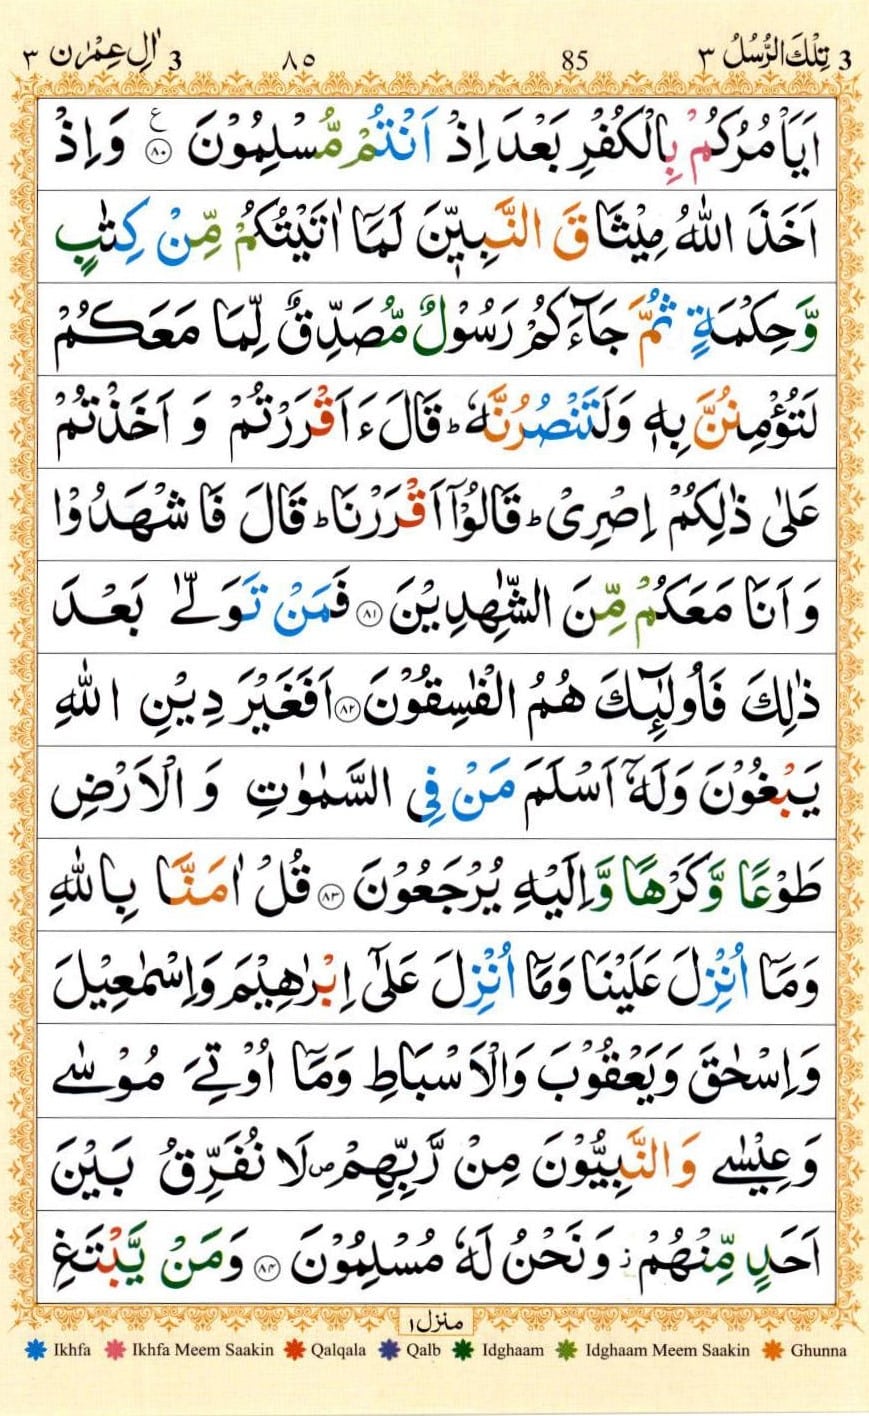 3 تِلْكَ الرُّسُلُ ٣ 85 ٨٥ 3 اٰلِ عِمْرٰن ٣
اَيَاْمُرُكُمْ بِالْكُفْرِ بَعْدَ اِذْ اَنْتُمْ مُّسْلِمُوْنَ ﴿٨٠﴾ ع وَ اِذْ
اَخَذَ اللّٰهُ مِيْثَاقَ النَّبِيّٖنَ لَمَاۤ اٰتَيْتُكُمْ مِّنْ كِتٰبٍ
وَّحِكْمَةٍ ثُمَّ جَآءَكُمْ رَسُوْلٌ مُّصَدِّقٌ لِّمَا مَعَكُمْ
لَتُؤْمِنُنَّ بِهٖ وَلَتَنْصُرُنَّهٗ ؕ قَالَ ءَاَقْرَرْتُمْ وَ اَخَذْتُمْ
عَلٰى ذٰلِكُمْ اِصْرِىْ ؕ قَالُوْۤا اَقْرَرْنَا ؕ قَالَ فَاشْهَدُوْا
وَ اَنَا مَعَكُمْ مِّنَ الشّٰهِدِيْنَ ﴿٨١﴾ فَمَنْ تَوَلّٰى بَعْدَ
ذٰلِكَ فَاُولٰٓئِكَ هُمُ الْفٰسِقُوْنَ ﴿٨٢﴾ اَفَغَيْرَ دِيْنِ اللّٰهِ
يَبْغُوْنَ وَلَهٗۤ اَسْلَمَ مَنْ فِى السَّمٰوٰتِ وَ الْاَرْضِ
طَوْعًا وَّكَرْهًا وَّاِلَيْهِ يُرْجَعُوْنَ ﴿٨٣﴾ قُلْ اٰمَنَّا بِاللّٰهِ
وَمَاۤ اُنْزِلَ عَلَيْنَا وَمَاۤ اُنْزِلَ عَلٰٓى اِبْرٰهِيْمَ وَاِسْمٰعِيْلَ
وَاِسْحٰقَ وَيَعْقُوْبَ وَالْاَسْبَاطِ وَمَاۤ اُوْتِىَ مُوْسٰى
وَ عِيْسٰى وَالنَّبِيُّوْنَ مِنْ رَّبِّهِمْ ص لَا نُفَرِّقُ بَيْنَ
اَحَدٍ مِّنْهُمْ ز وَنَحْنُ لَهٗ مُسْلِمُوْنَ ﴿٨٤﴾ وَمَنْ يَّبْتَغِ
منزل ١
Ikhfa Ikhfa Meem Saakin Qalqala Qalb Idghaam Idghaam Meem Saakin Ghunna